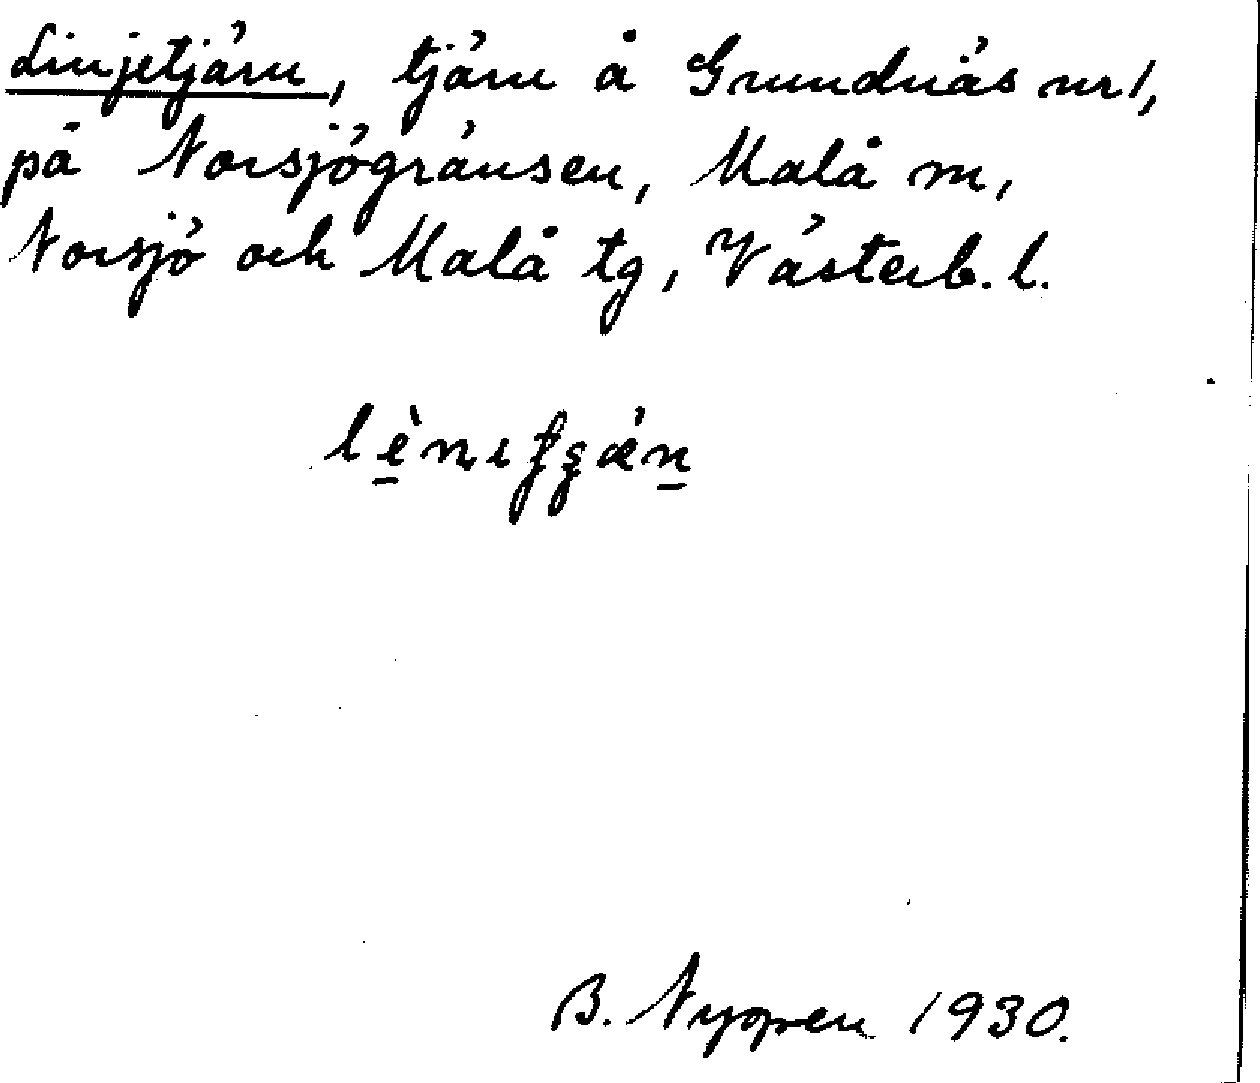 Linjetjärn, tjärn å Grundnäs nr 1,
på Norsjögränsen, Malå m,
Norsjö och Malå tg, Västerb. l.
B. Nyopen 1930.